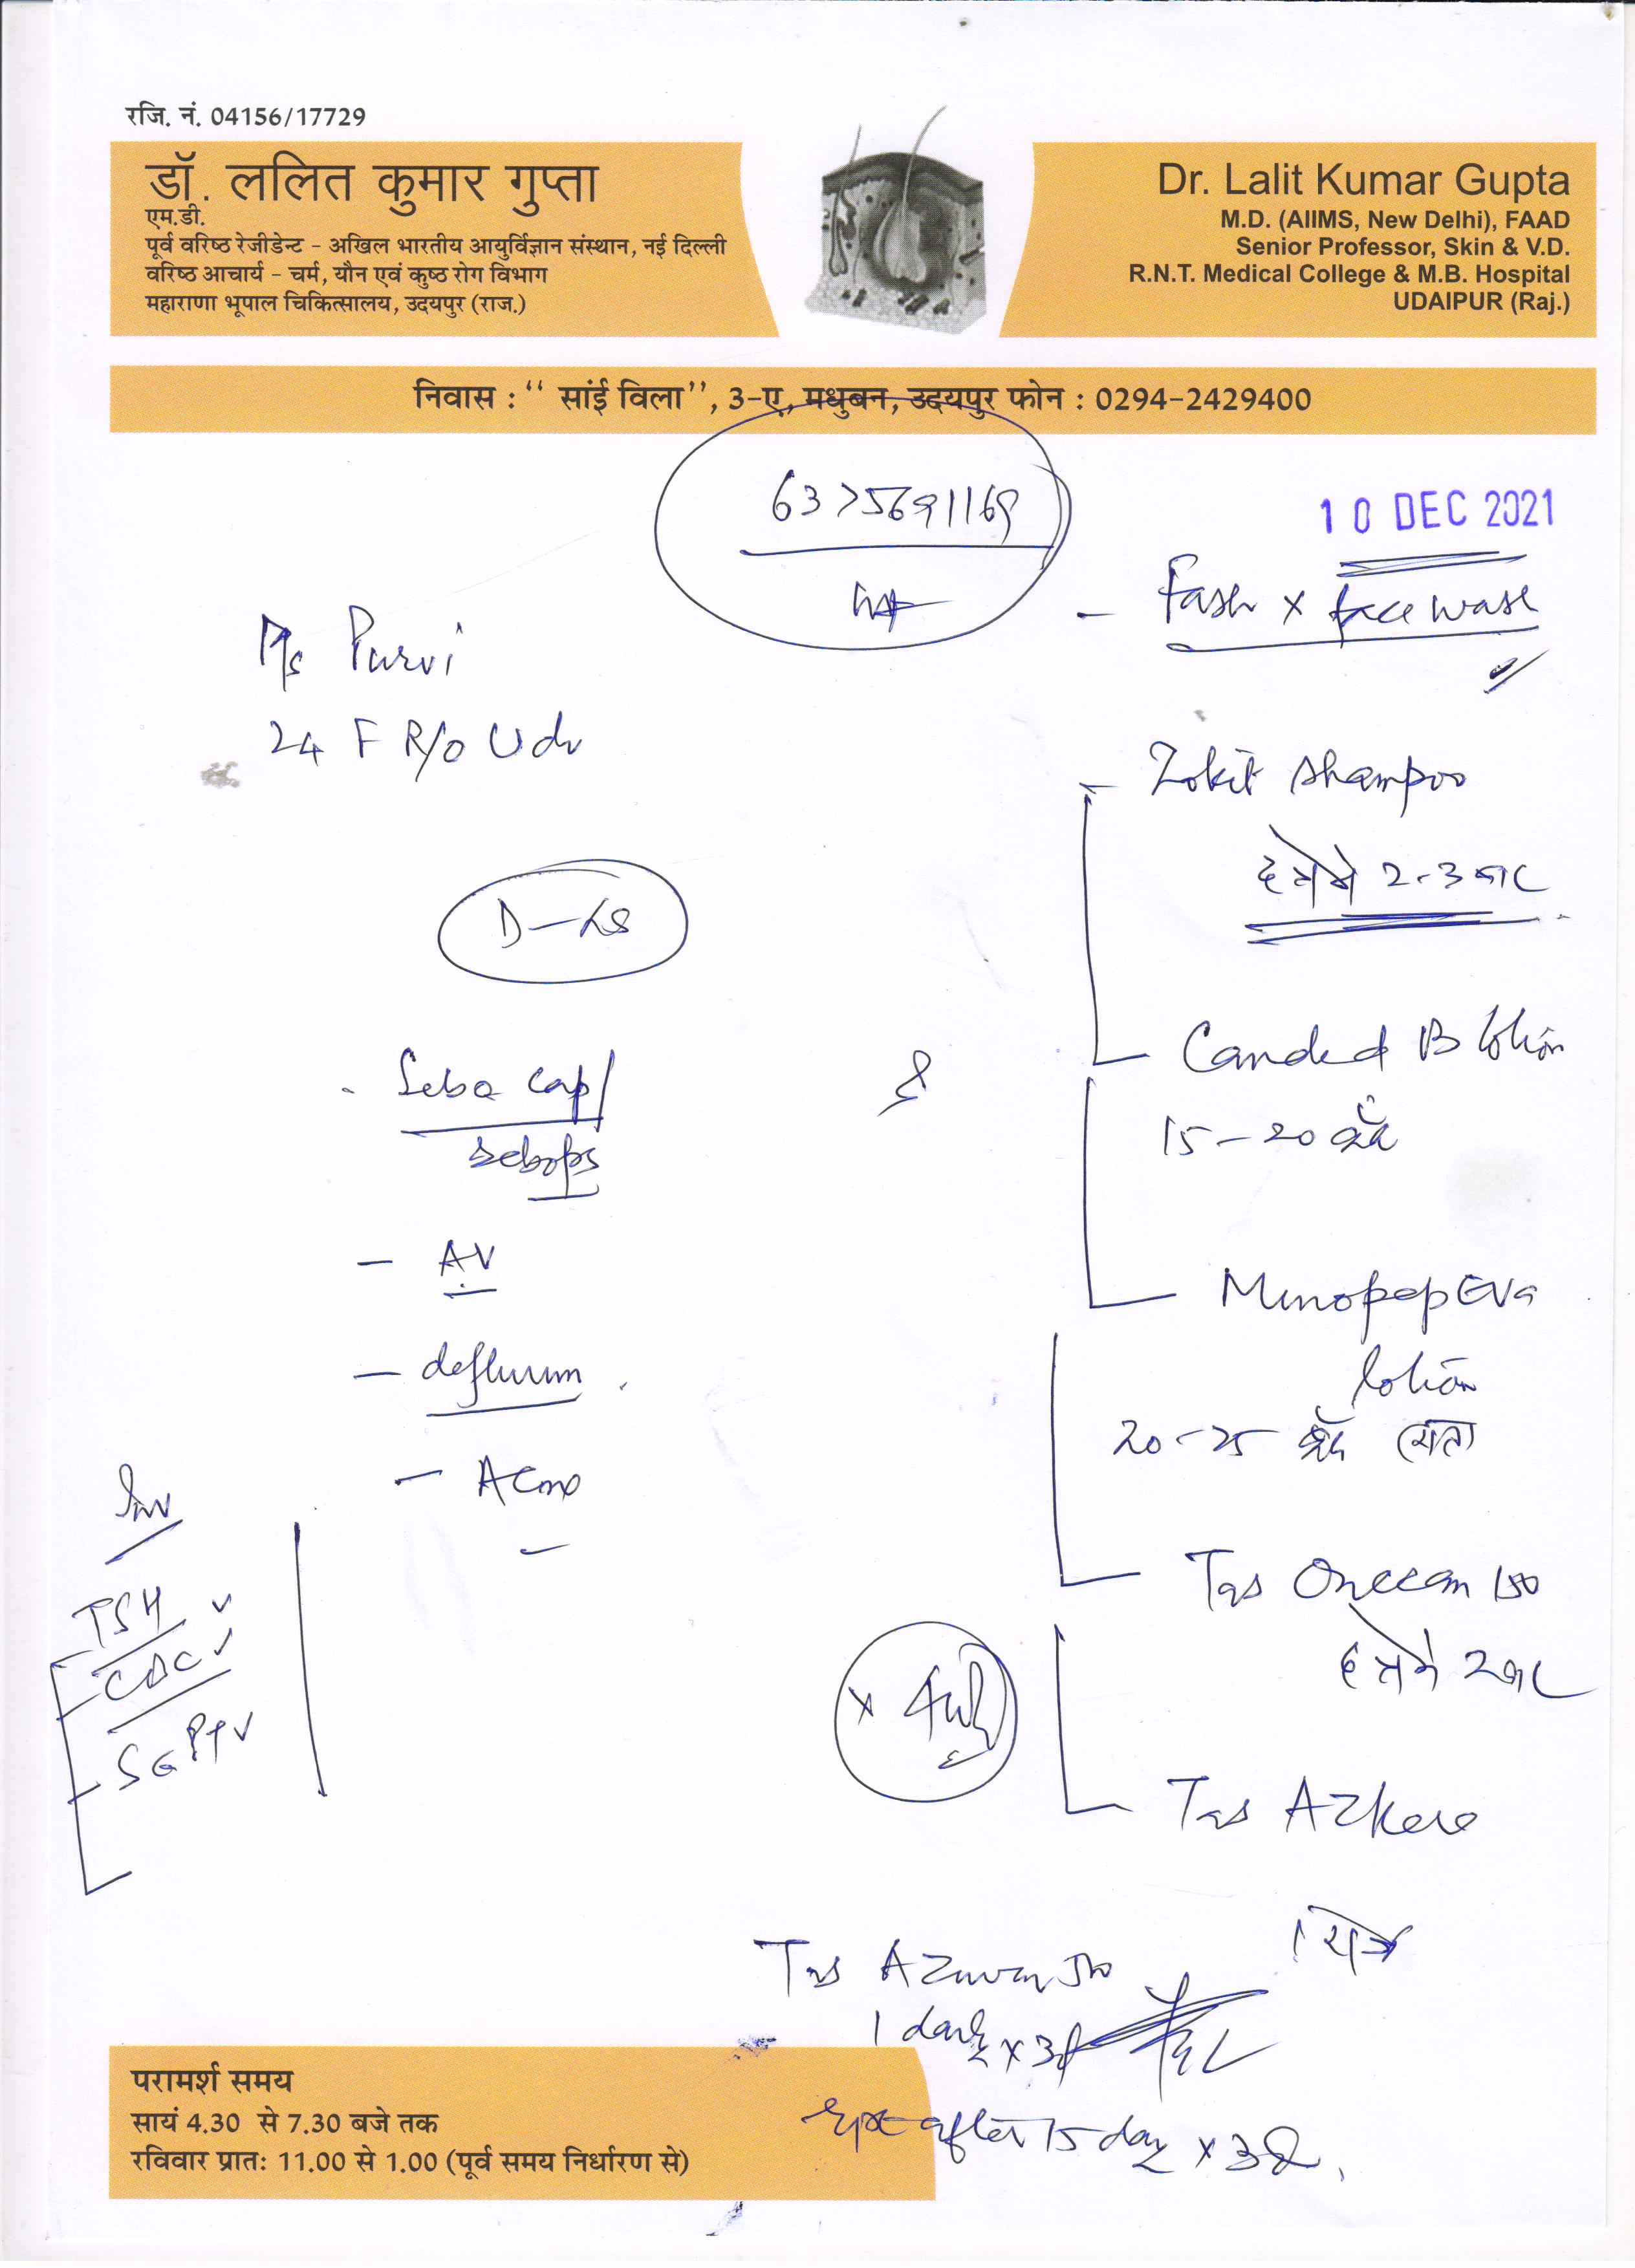 रजि. नं. 04156/17729
डॉ. ललित कुमार गुप्ता
एम.डी.
पूर्व वरिष्ठ रेजीडेन्ट - अखिल भारतीय आयुर्विज्ञान संस्थान, नई दिल्ली
वरिष्ठ आचार्य - चर्म, यौन एवं कुष्ठ रोग विभाग
महाराणा भूपाल चिकित्सालय, उदयपुर (राज.)
Dr. Lalit Kumar Gupta
M.D. (AIIMS, New Delhi), FAAD
Senior Professor, Skin & V.D.
R.N.T. Medical College & M.B. Hospital
UDAIPUR (Raj.)
निवास : “ सांई विला”, 3-ए, मधुबन, उदयपुर फोन : 0294-2429400
6375691169
10 DEC 2021
Ms Purvi
24 F R/o Udr
- Fash x face wash
- Zokit shampoo
2-3 बार
Candid B lotion
15-20 बूँद
Minopep Eva
lotion
20-25 बूँद
Tab Onecan 150
2 बार
Tab
Seba cap/
- AV
- defluvium
- Acne
Inv
TSH
CBC
SGPT
Tab 500
1 daily x 3d
after 15 day x 3d
परामर्श समय
सायं 4.30 से 7.30 बजे तक
रविवार प्रातः 11.00 से 1.00 (पूर्व समय निर्धारण से)